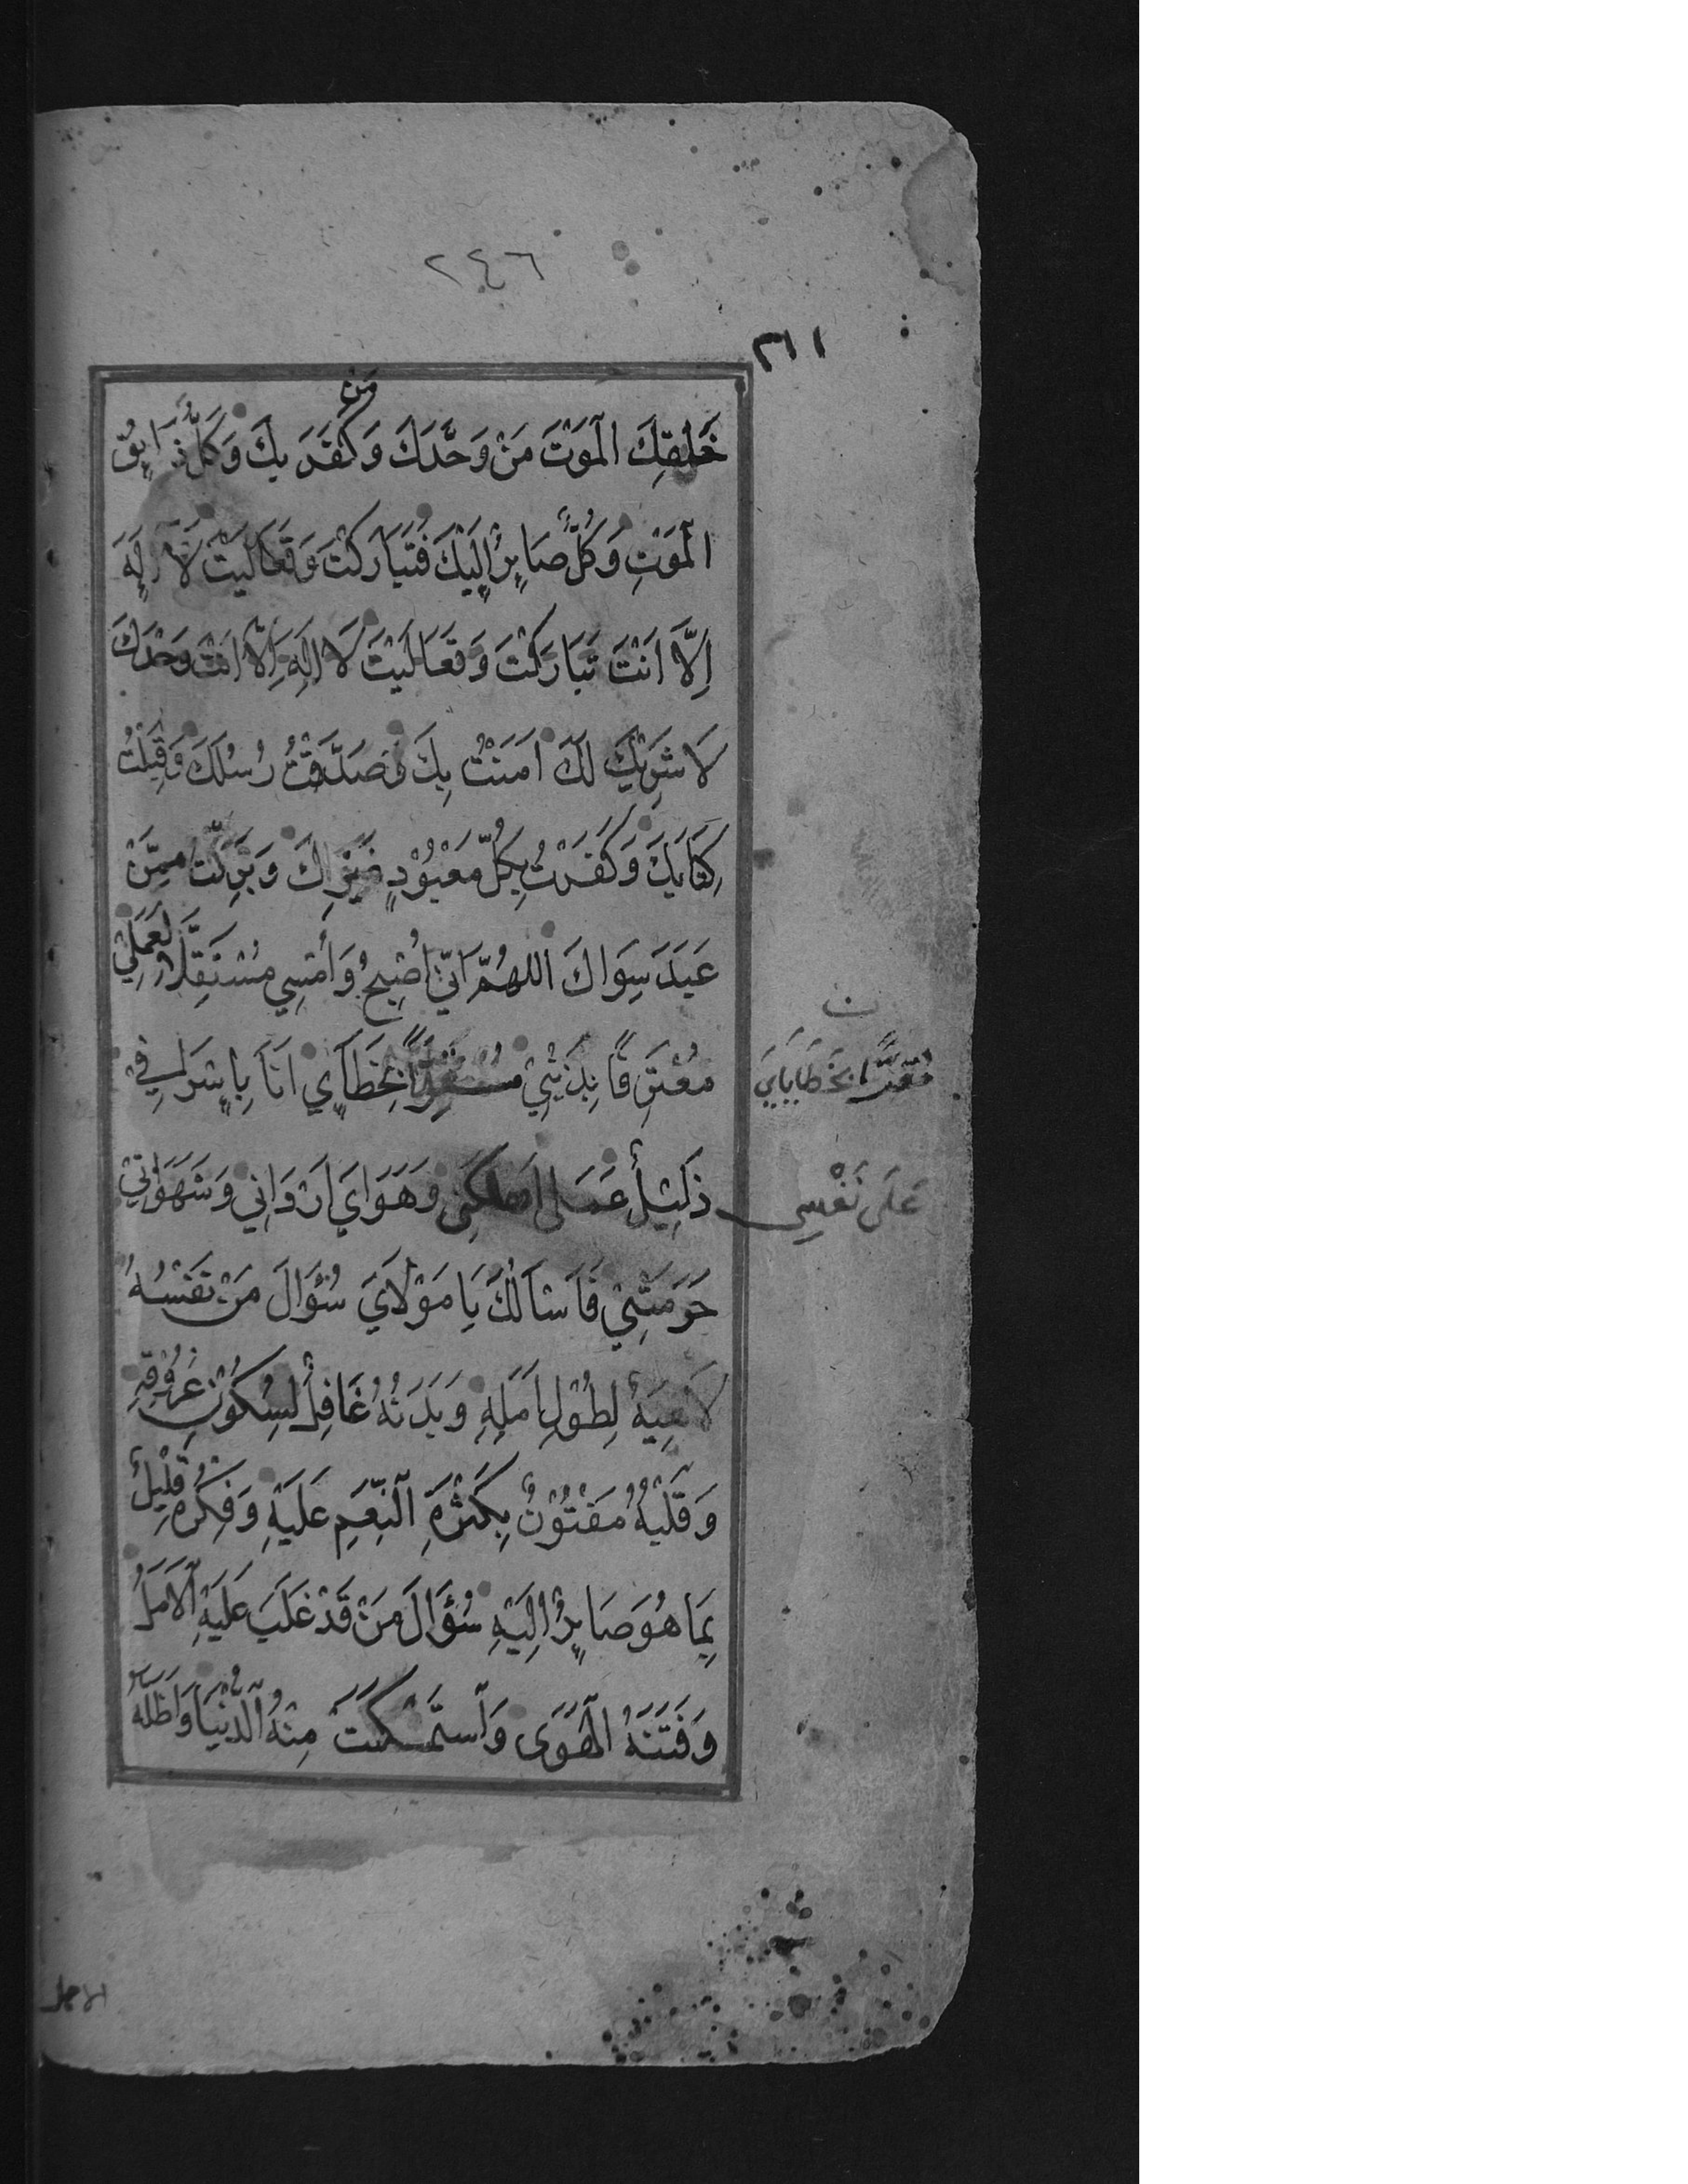 ٢٤٦
٣١١
مَنْ
خَلْقِكَ الْمَوْتَ مَنْ وَحَّدَكَ وَكَفَرَ بِكَ وَكُلٌّ ذَايِقُ
الْمَوْتِ وَكُلٌّ صَايِرٌ اِلَيْكَ فَتَبَارَكْتَ وَتَعَالَيْتَ لَا اِلَهَ
اِلَّا اَنْتَ تَبَارَكْتَ وَتَعَالَيْتَ لَا اِلَهَ اِلَّا اَنْتَ وَحْدَكَ
لَا شَرِيْكَ لَكَ اَمَنْتُ بِكَ وَصَدَّقْتُ رُسُلَكَ وَقَبِلْتُ
كِتَابَكَ وَكَفَرْتُ بِكُلِّ مَعْبُوْدٍ غَيْرِكَ وَبَرِئْتُ مِمَّنْ
عَبَدَ سِوَاكَ اللهُمَّ اِنِّي اُصْبِحُ وَاُمْسِي مُسْتَقِلًّا لِعَمَلِي
مُعْتَرِفًا بِذَنْبِيْ بِخَطَايَايَ اَنَا بِاِسْرَافِي
مُقِرًّا بِخَطَايَايَ
عَلَى نَفْسِي
ذَلِيْلٌ عَمَلِي اَهْلَكَنِي وَهَوَايَ اَرْدَانِي وَشَهَوَاتِيْ
حَرَمَتْنِيْ فَاَسْاَلُكَ يَا مَوْلَايَ سُؤَالَ مَنْ نَفْسُهُ
لَاهِيَةٌ لِطُوْلِ اَمَلِهِ وَبَدَنُهُ غَافِلٌ لِسُكُوْنِ عُرُوْقِهِ
وَقَلْبُهُ مَفْتُوْنٌ بِكَثْرَةِ النِّعَمِ عَلَيْهِ وَفِكْرُهُ قَلِيْلٌ
بِمَا هُوَ صَايِرٌ اِلَيْهِ سُؤَالَ مَنْ قَدْ غَلَبَ عَلَيْهِ الْاَمَلُ
وَفَتَنَهُ الْهَوَى وَاسْتَمْكَنَتْ مِنْهُ الدُّنْيَا وَاَظَلَّهُ
الاجل